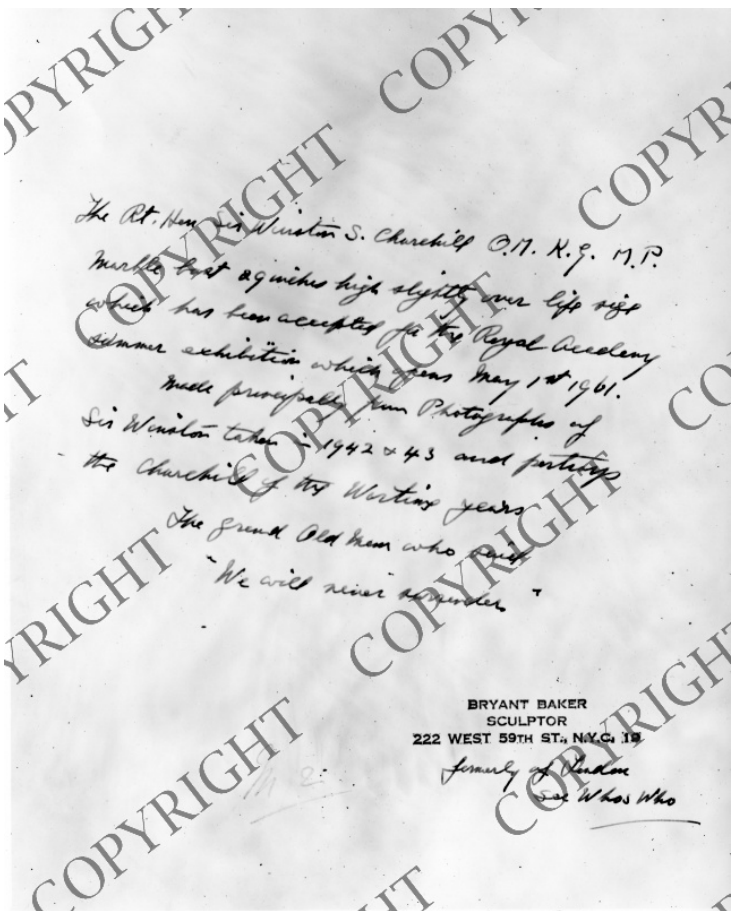 The Rt. Hon Sir Winston S. Churchill O.M. K.G. M.P.
Marble bust 29 inches high slightly over life size
which has been accepted for the Royal Academy
summer exhibition which opens May 1st 1961.
Made principally from Photographs of
Sir Winston taken in 1942 & 43 and portrays
the Churchill of the Wartime years
The grand Old Man who said
"We will never surrender"
BRYANT BAKER
SCULPTOR
222 WEST 59TH ST., N.Y.C. 19
formerly of London
See Whos Who
COPYRIGHT
COPYRIGHT
COPYRIGHT
COPYRIGHT
COPYRIGHT
COPYRIGHT
COPYRIGHT
COPYRIGHT
COPYRIGHT